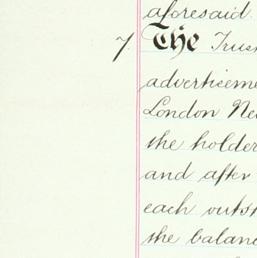 aforesaid.
7. The Trus
advertiseme
London Ne
the holder
and after
each outst
the balanc